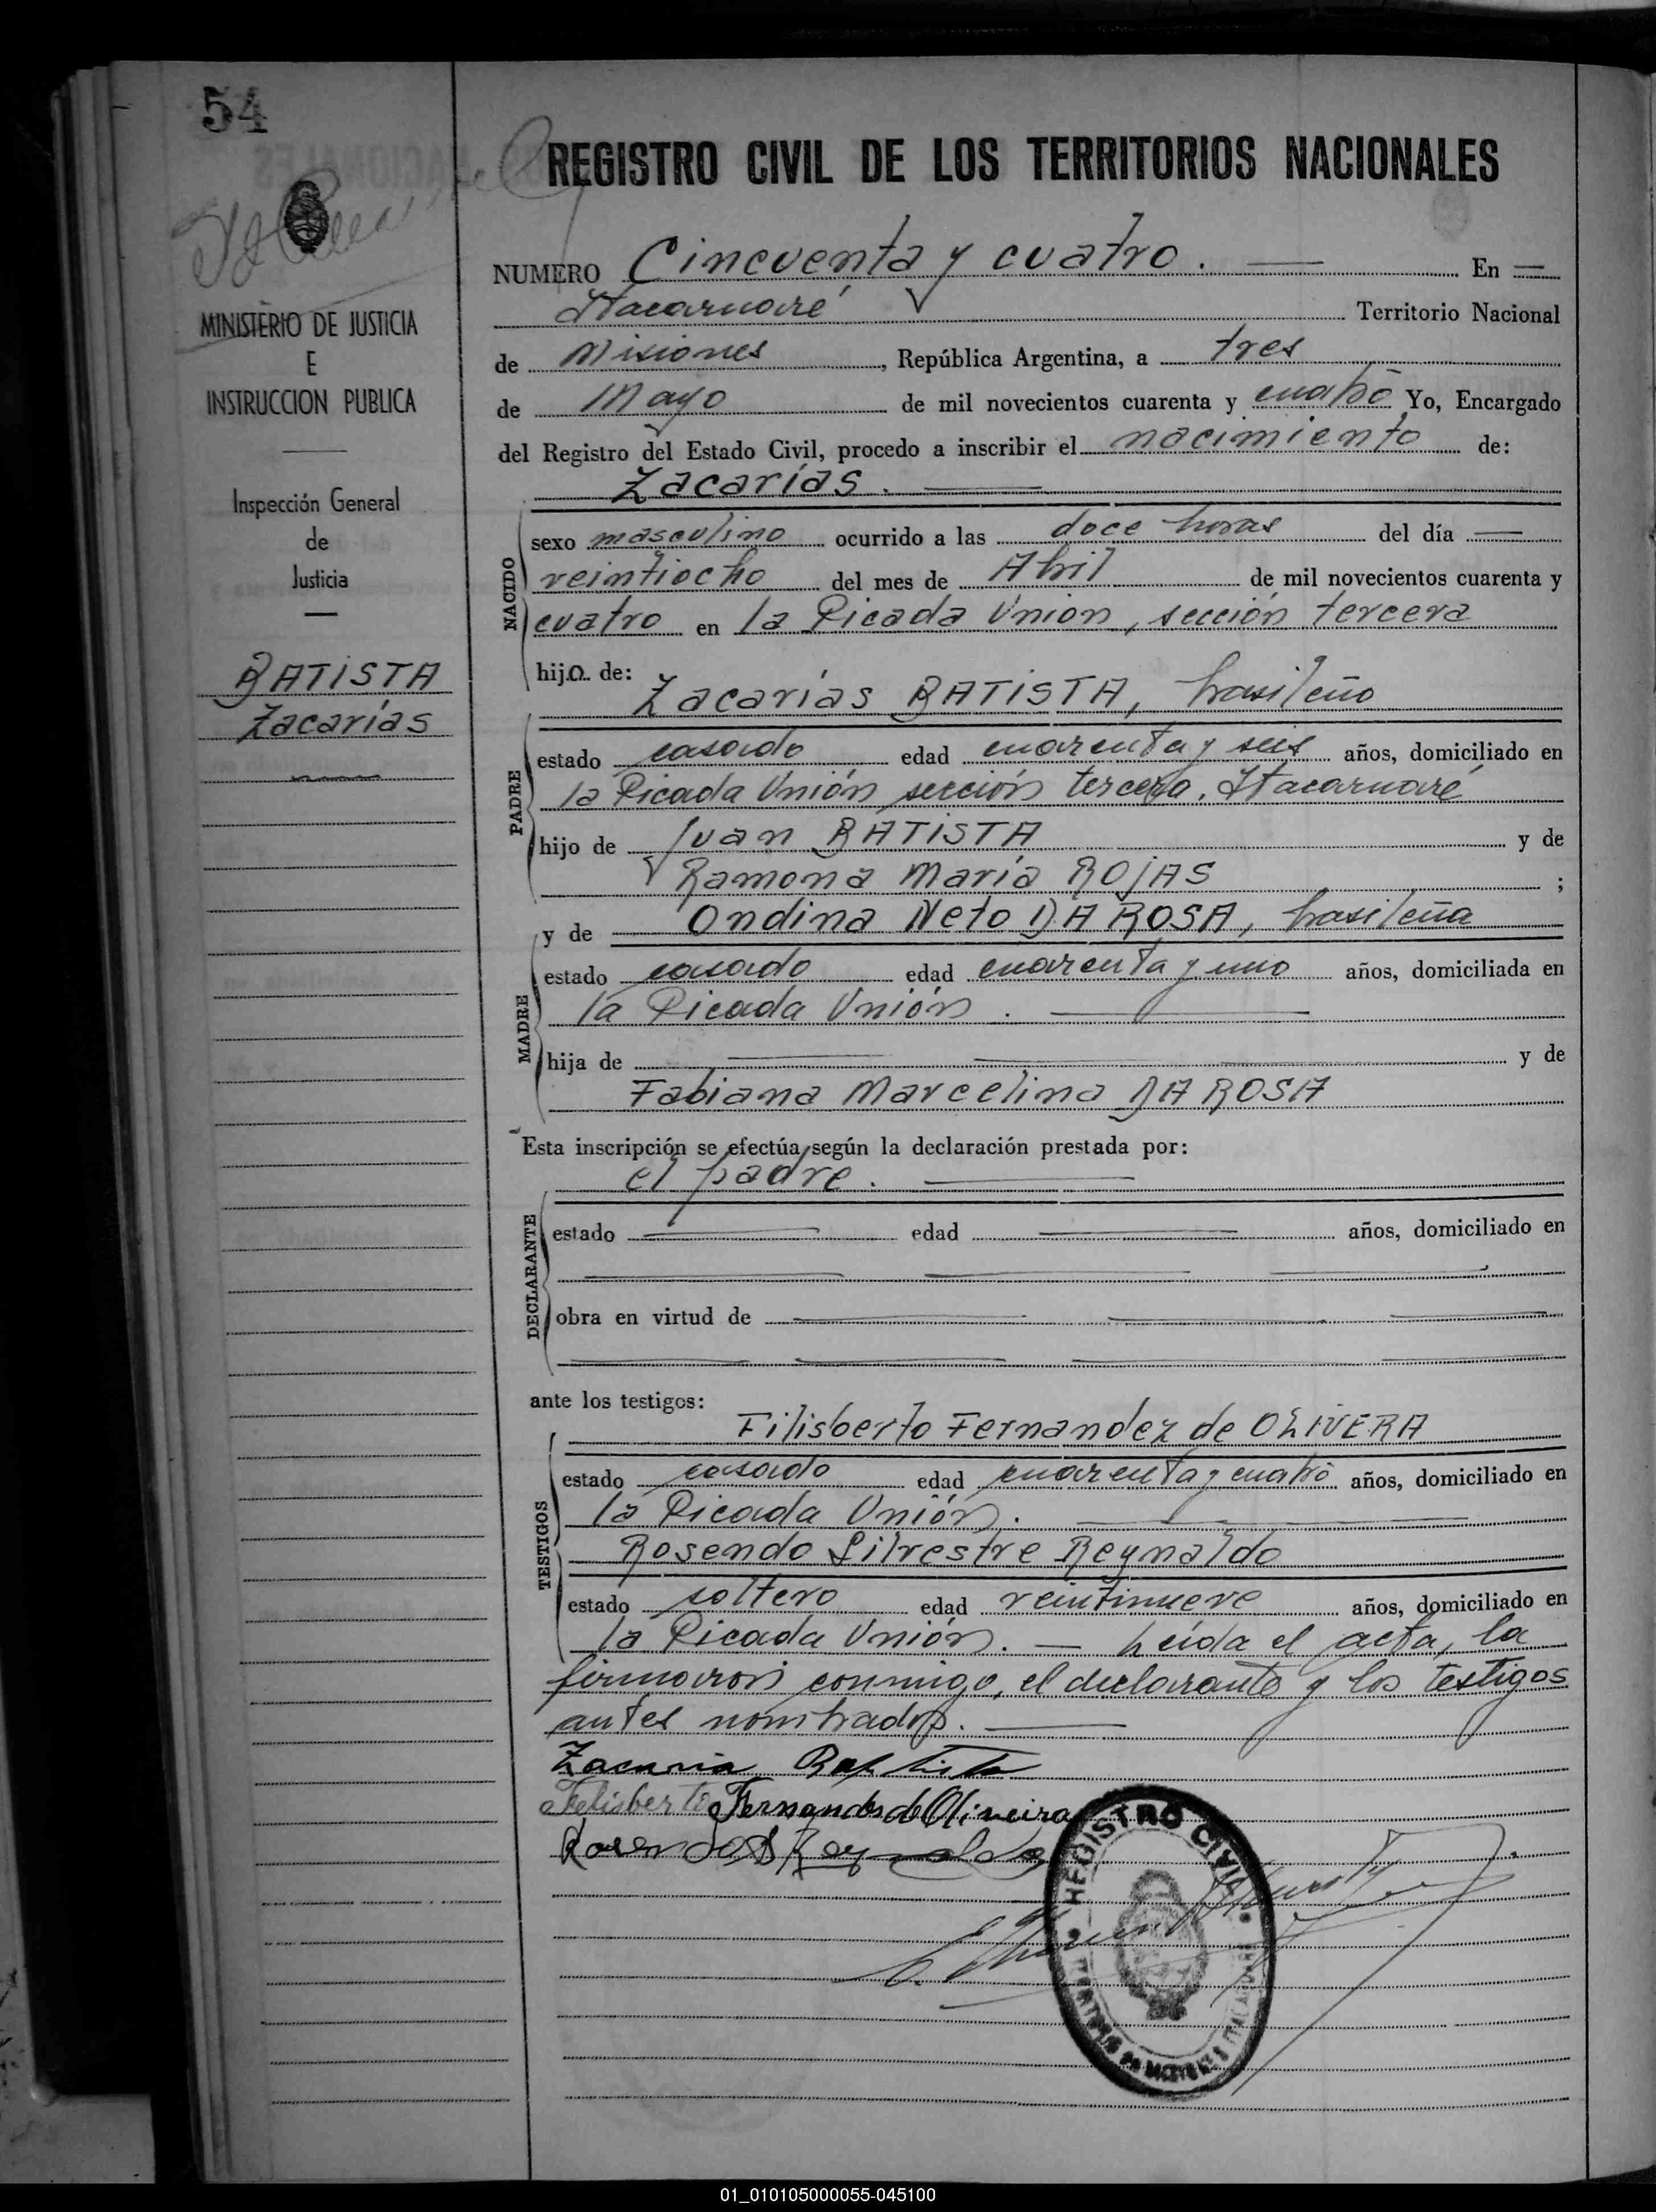 54
REGISTRO CIVIL DE LOS TERRITORIOS NACIONALES
MINISTERIO DE JUSTICIA
E
INSTRUCCION PUBLICA
Inspección General
de
Justicia
BATISTA
Zacarías
NUMERO Cincuenta y cuatro. — En —
Itacaruaré Territorio Nacional
de Misiones, República Argentina, a tres
de Mayo de mil novecientos cuarenta y cuatro Yo, Encargado
del Registro del Estado Civil, procedo a inscribir el nacimiento de:
Zacarías. —
NACIDO
sexo masculino ocurrido a las doce horas del día —
veintiocho del mes de Abril de mil novecientos cuarenta y
cuatro en la Picada Unión, sección tercera
hijo de:
Zacarías BATISTA, brasileño
PADRE
estado casado edad cuarenta y seis años, domiciliado en
la Picada Unión sección tercera, Itacaruaré
hijo de Juan BATISTA y de
Ramona María ROJAS ;
y de Ondina Neto DA ROSA, brasileña
MADRE
estado casado edad cuarenta y uno años, domiciliada en
la Picada Unión. —
hija de — — y de
Fabiana Marcelina DA ROSA
Esta inscripción se efectúa según la declaración prestada por:
el padre. —
DECLARANTE
estado — edad — años, domiciliado en
— — —
obra en virtud de — — —
— — — —
ante los testigos:
Filisberto Fernandez de OLIVERA
TESTIGOS
estado casado edad cuarenta y cuatro años, domiciliado en
la Picada Unión. —
Rosendo Silvestre Reynaldo
estado soltero edad veintinueve años, domiciliado en
la Picada Unión. — Leída el acta, la
firmaron conmigo, el declarante y los testigos
antes nombrados. —
Zacaria Baptista
Felisberto Fernandes de Oliveira
Rosendo S Reynaldo
REGISTRO CIVIL
01_010105000055-045100